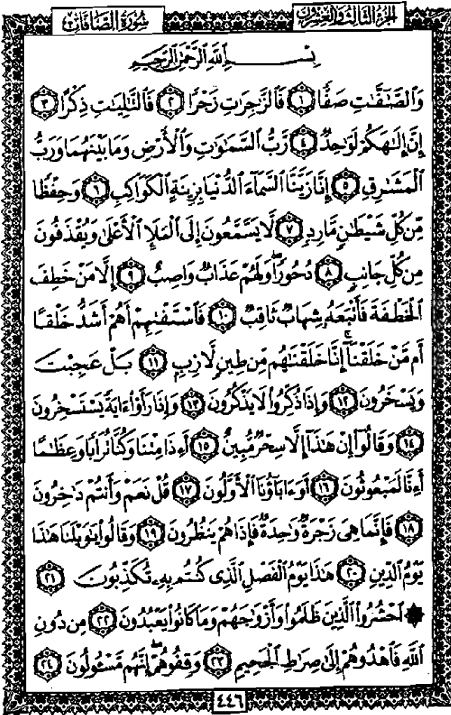 الجزء الثالث والعشرون
سورة الصافات
بِسْمِ ٱللَّهِ ٱلرَّحْمَٰنِ ٱلرَّحِيمِ
وَٱلصَّٰٓفَّٰتِ صَفًّا ١ فَٱلزَّٰجِرَٰتِ زَجْرًا ٢ فَٱلتَّٰلِيَٰتِ ذِكْرًا ٣
إِنَّ إِلَٰهَكُمْ لَوَٰحِدٌ ٤ رَّبُّ ٱلسَّمَٰوَٰتِ وَٱلْأَرْضِ وَمَا بَيْنَهُمَا وَرَبُّ
ٱلْمَشَٰرِقِ ٥ إِنَّا زَيَّنَّا ٱلسَّمَآءَ ٱلدُّنْيَا بِزِينَةٍ ٱلْكَوَاكِبِ ٦ وَحِفْظًا
مِّن كُلِّ شَيْطَٰنٍ مَّارِدٍ ٧ لَّا يَسَّمَّعُونَ إِلَى ٱلْمَلَإِ ٱلْأَعْلَىٰ وَيُقْذَفُونَ
مِن كُلِّ جَانِبٍ ٨ دُحُورًا ۖ وَلَهُمْ عَذَابٌ وَاصِبٌ ٩ إِلَّا مَنْ خَطِفَ
ٱلْخَطْفَةَ فَأَتْبَعَهُۥ شِهَابٌ ثَاقِبٌ ١٠ فَٱسْتَفْتِهِمْ أَهُمْ أَشَدُّ خَلْقًا
أَم مَّنْ خَلَقْنَآ ۚ إِنَّا خَلَقْنَٰهُم مِّن طِينٍ لَّازِبٍ ١١ بَلْ عَجِبْتَ
وَيَسْخَرُونَ ١٢ وَإِذَا ذُكِّرُوا۟ لَا يَذْكُرُونَ ١٣ وَإِذَا رَأَوْا۟ ءَايَةً يَسْتَسْخِرُونَ
١٤ وَقَالُوٓا۟ إِنْ هَٰذَآ إِلَّا سِحْرٌ مُّبِينٌ ١٥ أَءِذَا مِتْنَا وَكُنَّا تُرَابًا وَعِظَٰمًا
أَءِنَّا لَمَبْعُوثُونَ ١٦ أَوَءَابَآؤُنَا ٱلْأَوَّلُونَ ١٧ قُلْ نَعَمْ وَأَنتُمْ دَٰخِرُونَ
١٨ فَإِنَّمَا هِىَ زَجْرَةٌ وَٰحِدَةٌ فَإِذَا هُمْ يَنظُرُونَ ١٩ وَقَالُوا۟ يَٰوَيْلَنَا هَٰذَا
يَوْمُ ٱلدِّينِ ٢٠ هَٰذَا يَوْمُ ٱلْفَصْلِ ٱلَّذِى كُنتُم بِهِۦ تُكَذِّبُونَ ٢١
۞ ٱحْشُرُوا۟ ٱلَّذِينَ ظَلَمُوا۟ وَأَزْوَٰجَهُمْ وَمَا كَانُوا۟ يَعْبُدُونَ ٢٢ مِن دُونِ
ٱللَّهِ فَٱهْدُوهُمْ إِلَىٰ صِرَٰطِ ٱلْجَحِيمِ ٢٣ وَقِفُوهُمْ ۖ إِنَّهُم مَّسْـُٔولُونَ ٢٤
٤٤٦